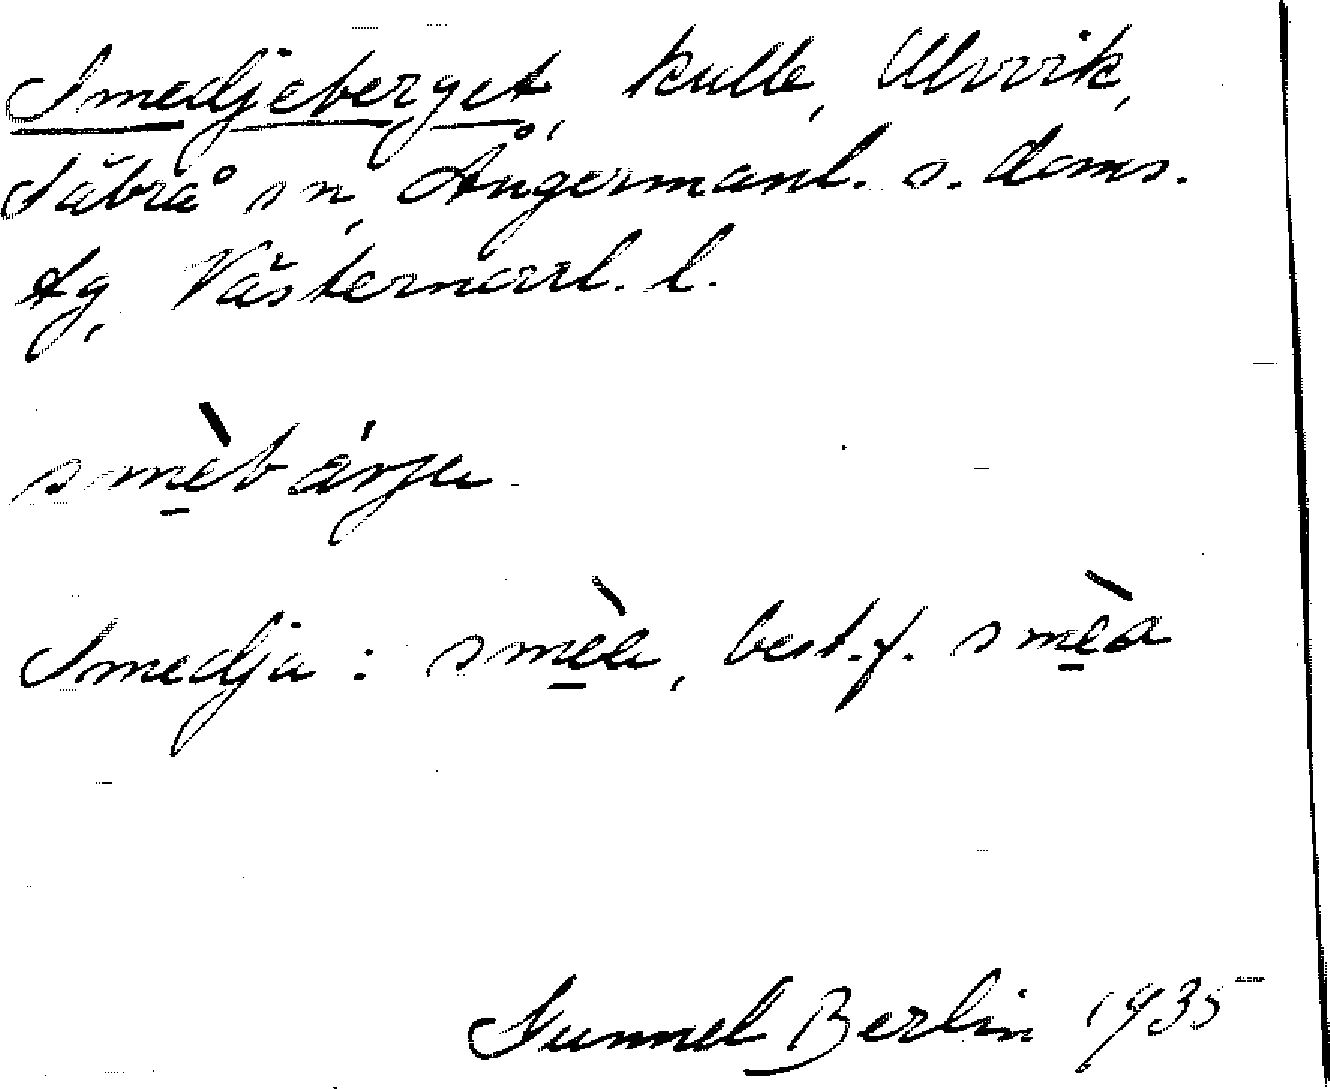 Smedjeberget, kulle, Ulvvik,
Säbrå sn, Ångermanl. s. doms.
tg, Västernorrl. l.
smèbárjɯ
Smedja : smèɯ, best. f. smèa
Gunnel Berlin 1935